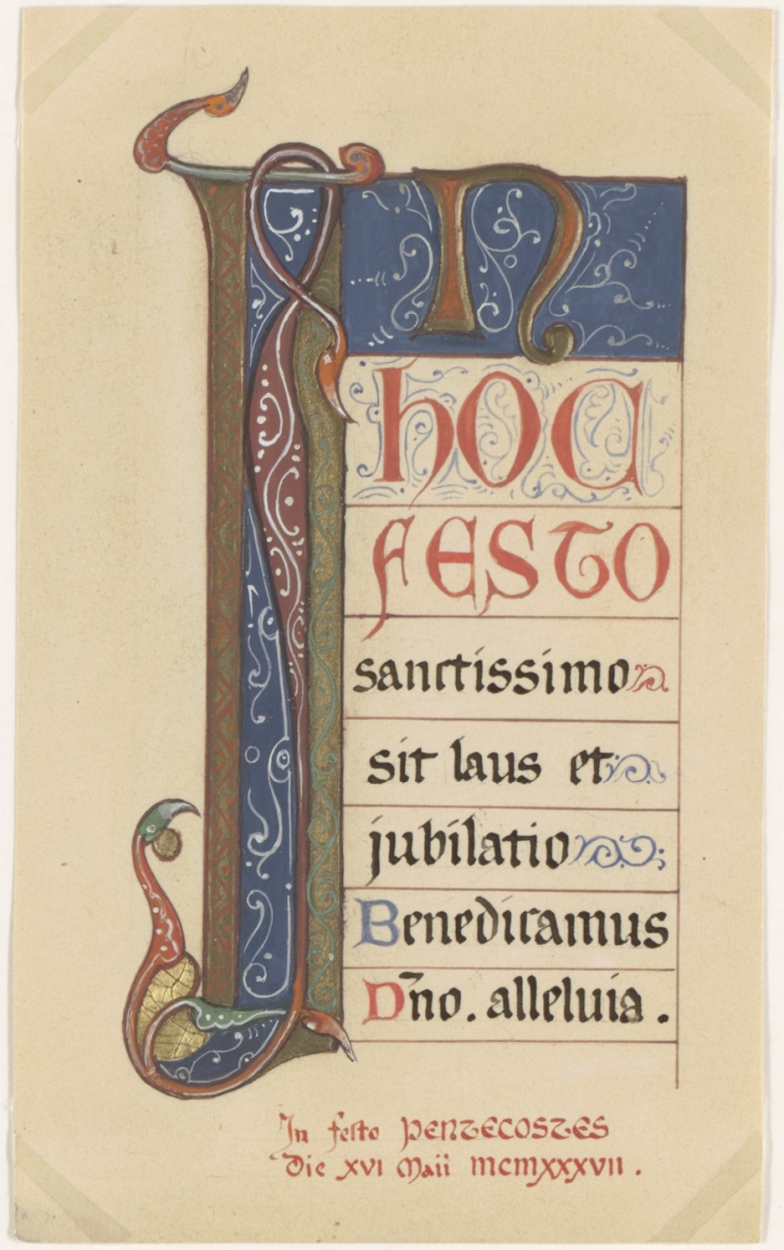 In
hoc
FESTO
sanctissimo
sit laus et
jubilatio
Benedicamus
Dn̄o. alleluia.
In festo PENTECOSTES
Die XVI Maii MCMXXXVII.